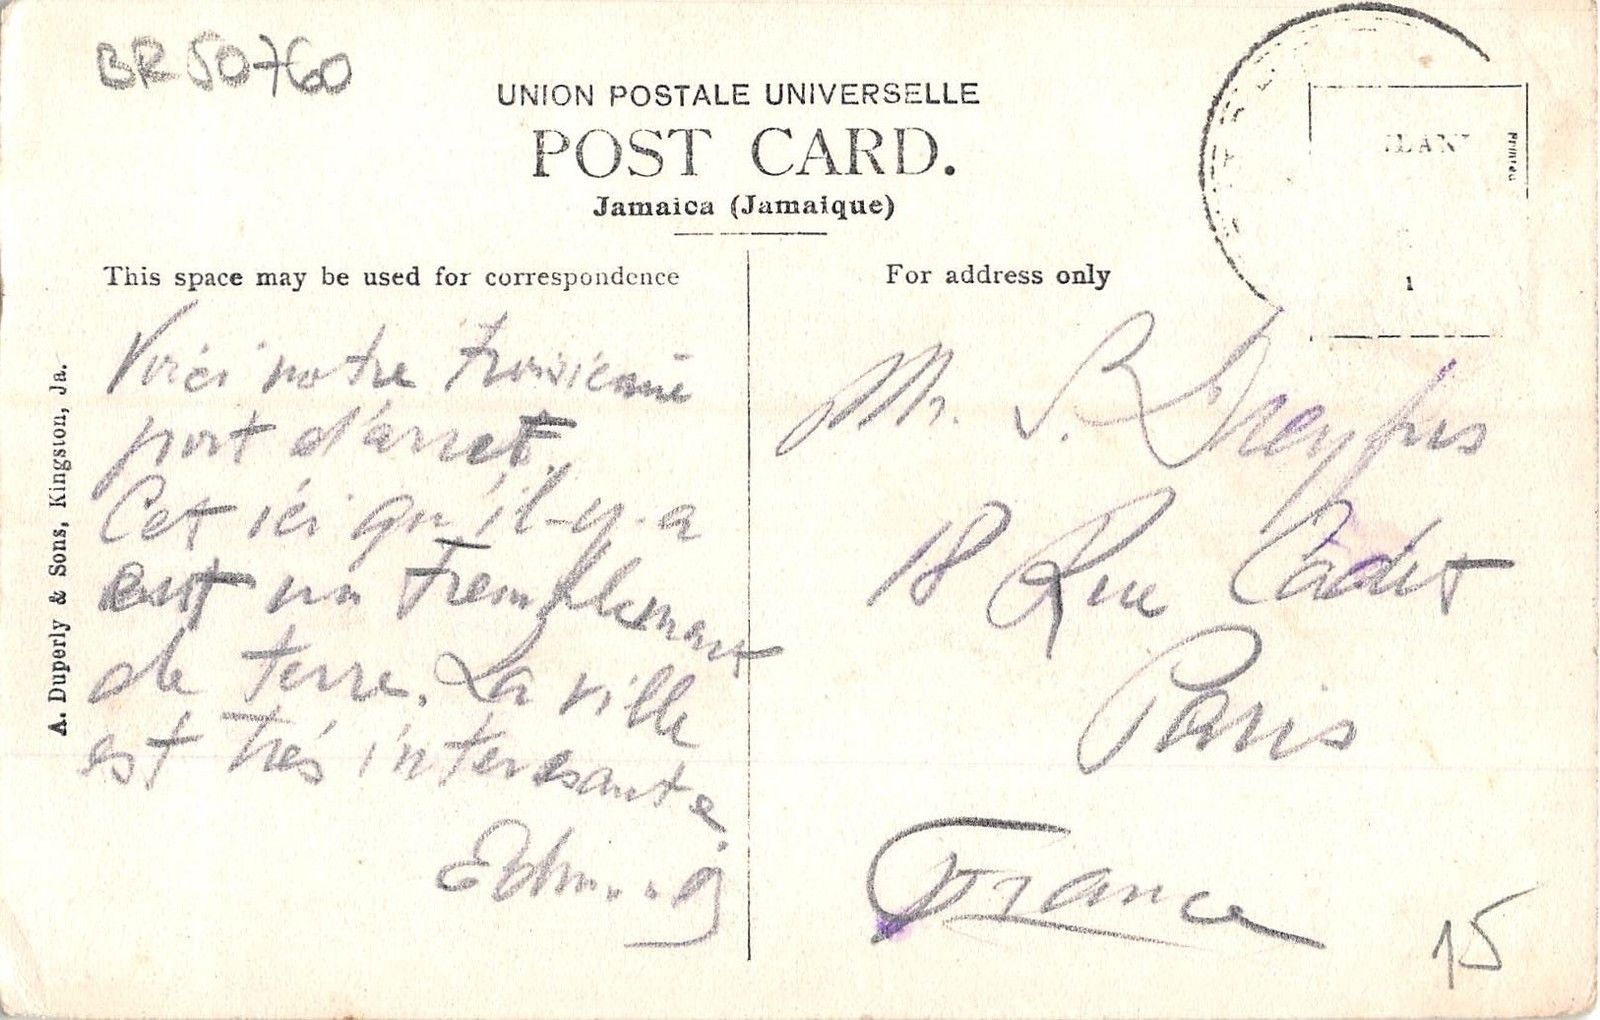 BR 50760
UNION POSTALE UNIVERSELLE
POST CARD.
Jamaica (Jamaique)
This space may be used for correspondence
For address only
Printed
1
A. Duperly & Sons, Kingston, Ja.
Voici notre troisieme
port d'arret.
Cet ici qu'il-y-a
eut un tremblemant
de terre. La ville
est trés interesante.
Edmond
Mr. B. Dreyfus
18 Rue Cadet
Paris
France
15